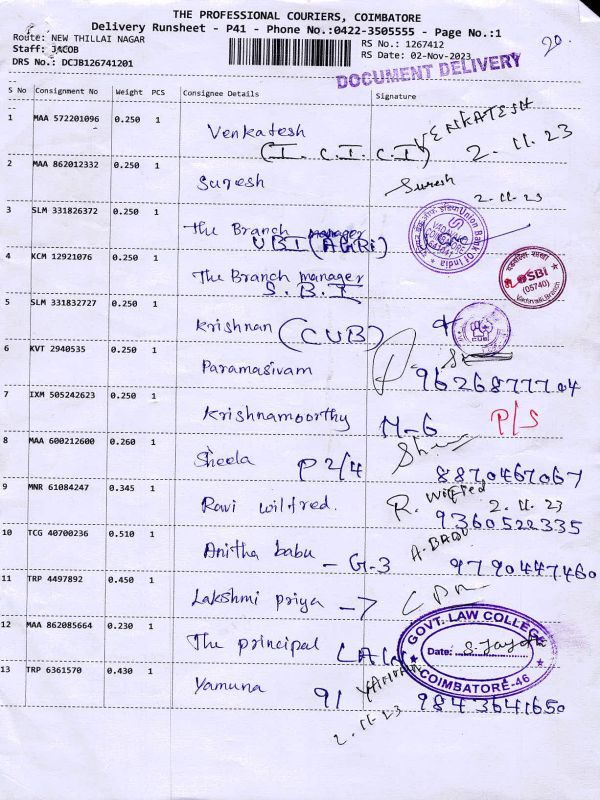 THE PROFESSIONAL COURIERS, COIMBATORE
Delivery Runsheet - P41 - Phone No.:0422-3505555 - Page No.:1
Route: NEW THILLAI NAGAR
Staff: JACOB
DRS No.: DCJB126741201
RS No.: 1267412
RS Date: 02-Nov-2023
20.
DOCUMENT DELIVERY
S No Consignment No Weight PCS Consignee Details Signature
1 MAA 572201096 0.250 1 Venkatesh VENKATESH
(I. C. I. C. I) 2. 11. 23
2 MAA 862012332 0.250 1 Suresh Suresh 2. 11. 23
3 SLM 331826372 0.250 1 The Branch manager
UBI (AGRI)
Union Bank Of India
4 KCM 12921076 0.250 1 The Branch manager
S. B. I
SBI
(05740)
Vadavalli Branch
5 SLM 331832727 0.250 1 Krishnan (CUB)
6 KVT 2940535 0.250 1 Paramasivam 9626877704
7 IXM 505242623 0.250 1 Krishnamoorthy M-6 P/S
8 MAA 600212600 0.260 1 Sheela P 2/4 8870467067
9 MNR 61084247 0.345 1 Ravi wilfred. R. Wilfred 2. 11. 23
9360522335
10 TCG 40700236 0.510 1 Anitha babu - G-3 A-BABU 9790447460
11 TRP 4497892 0.450 1 Lakshmi priya -7
12 MAA 862085664 0.230 1 The principal
GOVT. LAW COLLEGE
Date:
COIMBATORE-46
13 TRP 6361570 0.430 1 Yamuna 91 YAMUNA 9843641650
2. 11. 23